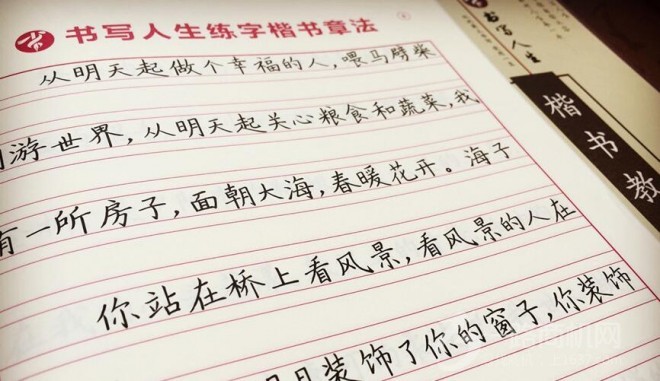 书写人生练字楷书章法
从明天起做个幸福的人,喂马劈柴
游世界,从明天起关心粮食和蔬菜,我
有一所房子,面朝大海,春暖花开。海子
你站在桥上看风景,看风景的人在
月装饰了你的窗子,你装饰
书写人生
楷书教